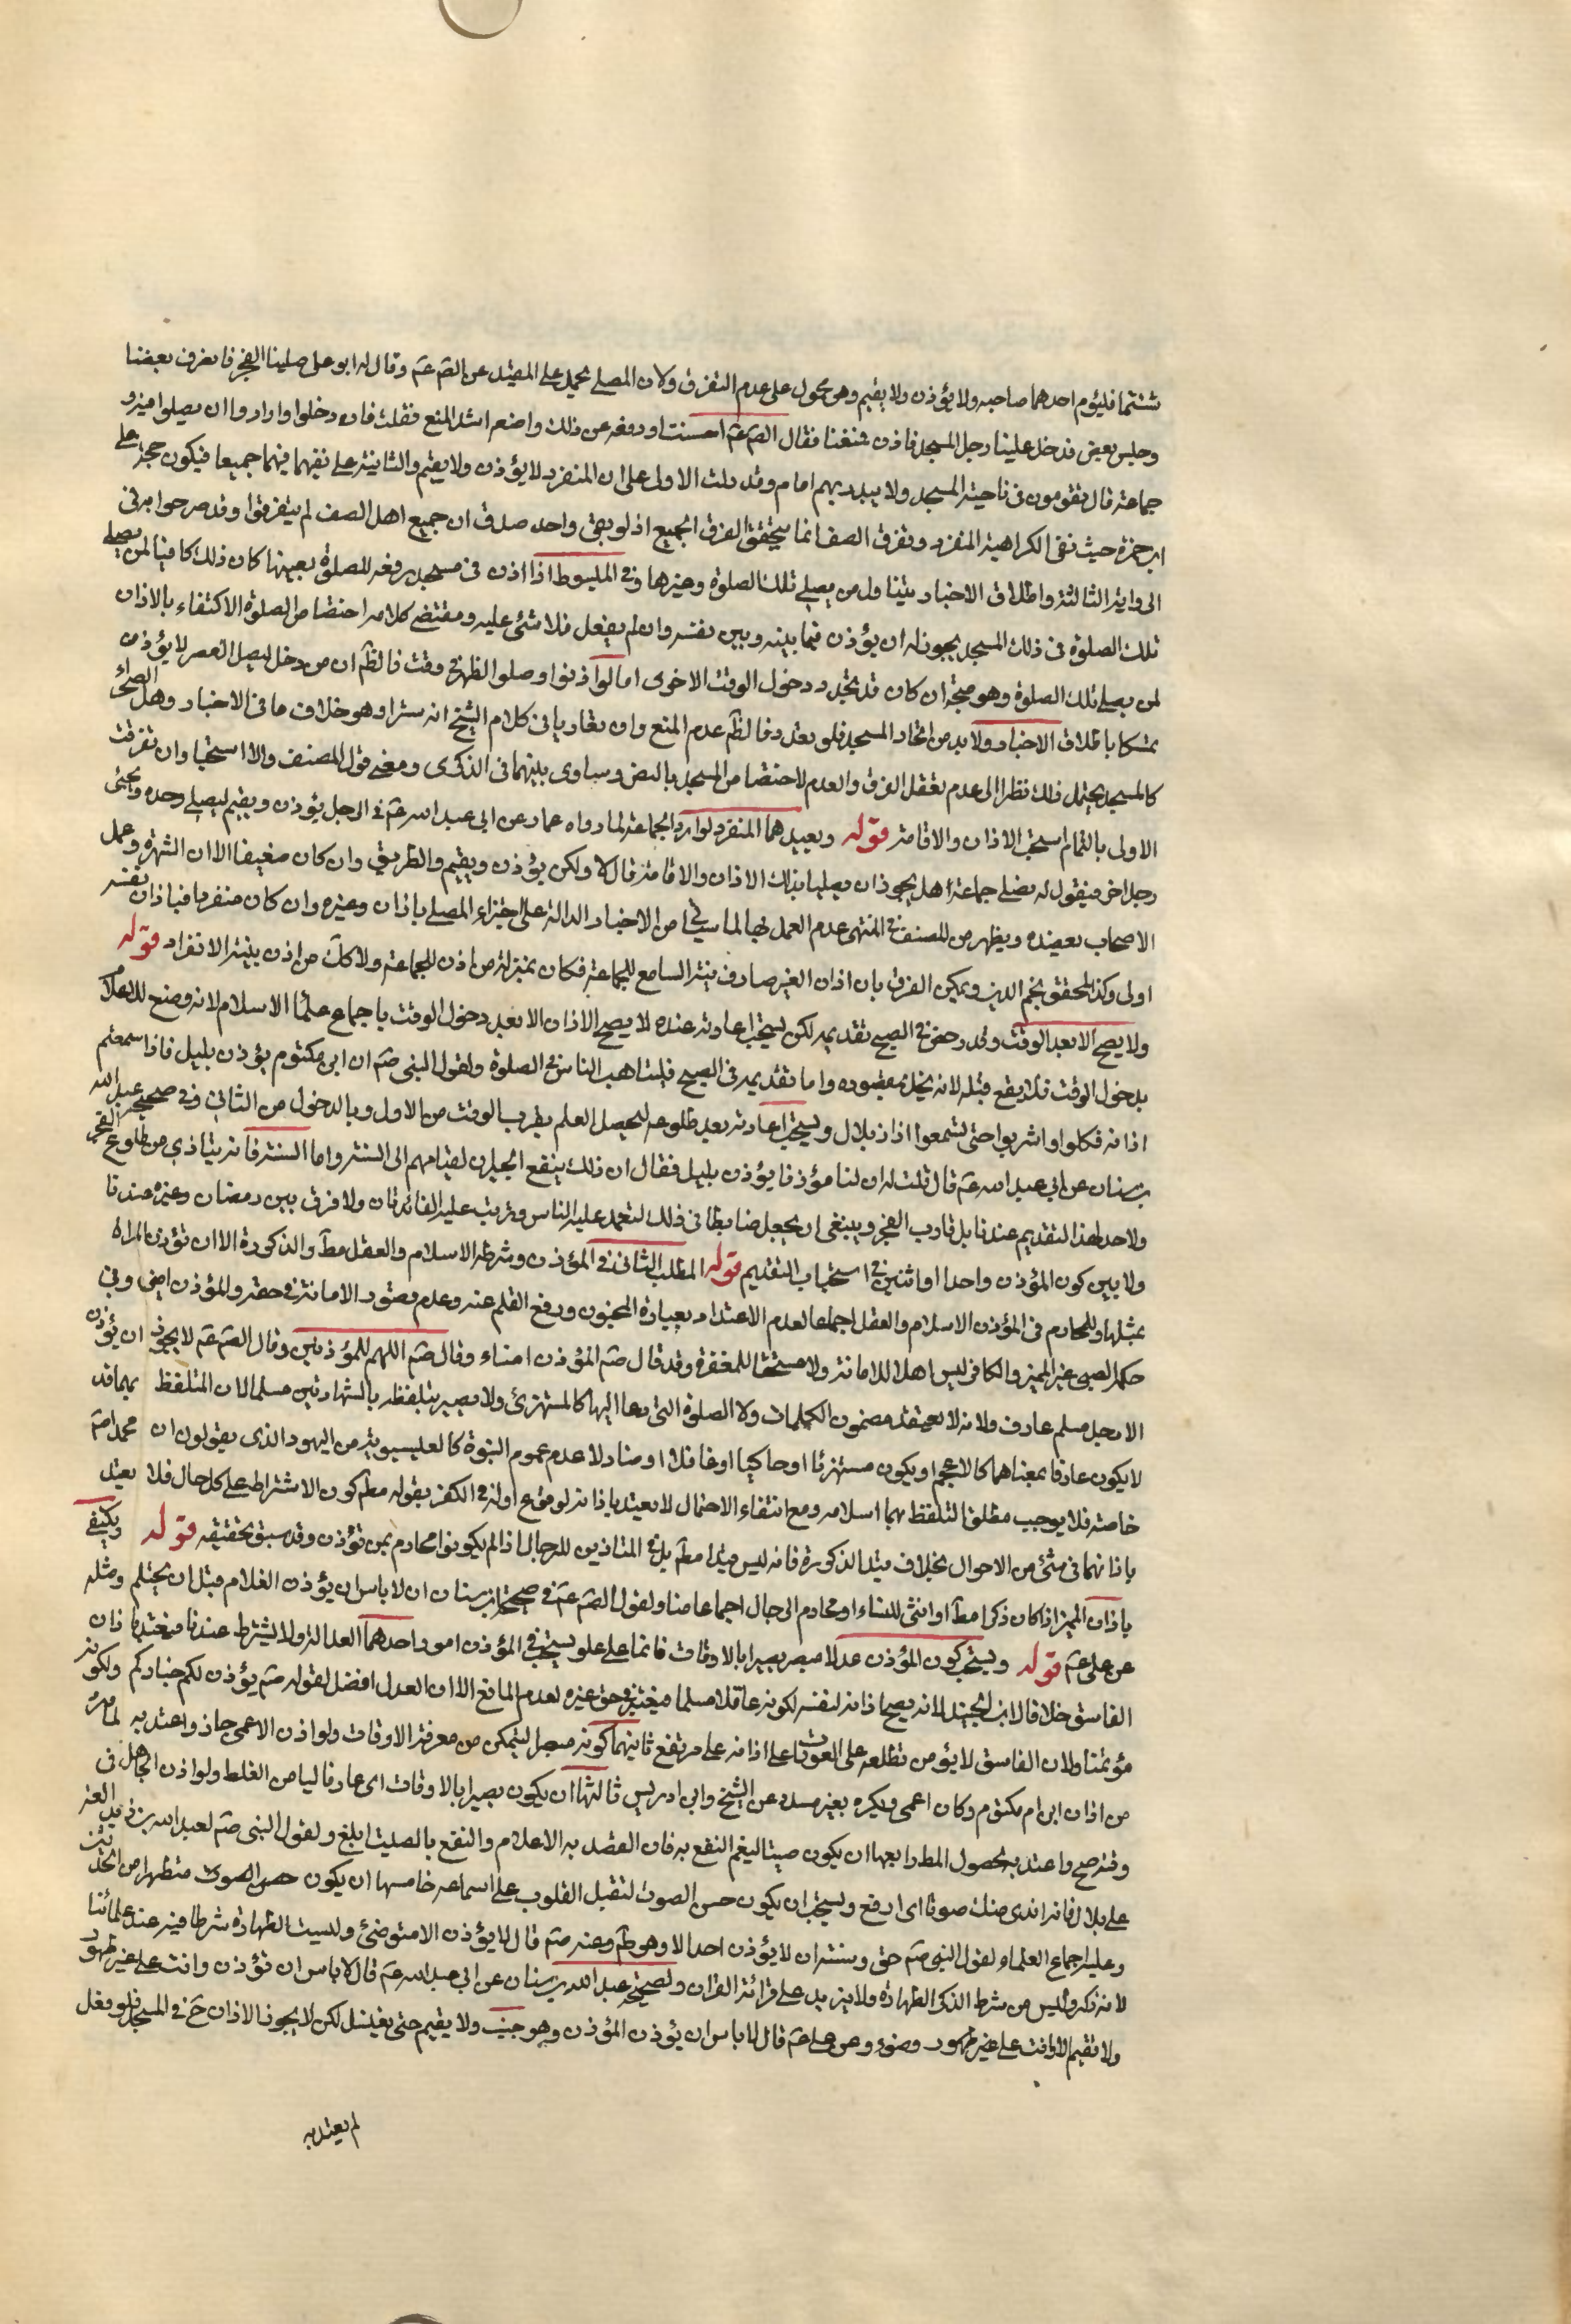 شئتما فليؤم احدهما صاحبه ولا يؤذن ولا يقيم وهو محمول على عدم التفرق ولان المصلي يحمل على المقيد عن الصّ عم وقال له ابو علي صلينا الفجر فانصرف بعضنا
وجلس بعض فدخل علينا رجل المسجد فاذن فمنعنا فقال الصّ عم احسنت اودفعه عن ذلك وامنعه اشد المنع فقلت فان دخلوا وارادوا ان يصلوا فيه
جماعة قال يقومون في ناحية المسجد ولا يبدو بهم امام وقد دلت الاولى على ان المنفرد لا يؤذن ولا يقيم والثانية على نفيهما فيهما جميعا فيكون حجة على
ابن حمزة حيث نفى الكراهية للمنفرد وتفرق الصف انما يتحقق الفرق الجميع اذ لو بقى واحد صدق ان جميع اهل الصف لم يتفرقوا وقد صرحوا به في
الرواية الثالثة واطلاق الاخبار يتناول من يصلي تلك الصلوة وغيرها وفي المبسوط اذا اذن في مسجد دفعة للصلوة بعينها كان ذلك كافيا لمن يصلي
تلك الصلوة في ذلك المسجد يجوز له ان يؤذن فيما بينه وبين نفسه وان لم يفعل فلا شئ عليه ومقتضى كلامه اختصاص الصلوة الاكتفاء بالاذان
لمن يصلي تلك الصلوة وهو متجه ان كان قد تجدد دخول الوقت الاخرى اما لو اذنوا وصلوا الظهر في وقت فالظّ ان من دخل ليصل العصر لا يؤذن
تمسكا باطلاق الاخبار ولا بد من اتحاد المسجد فلو تعدد فالظّ عدم المنع وان تقاربا في كلام الشيخ انه سترا وهو خلاف ما في الاخبار وهل الصحراء
كالمسجد يحتمل ذلك نظرا الى عدم تعقل الفرق والعدم لاختصاص المسجد بالنص وساوى بينهما في الذكرى ومعنى قول المصنف والا استحبا وان تفرقت
الاولى بالتمام استحب الاذان والاقامة قوله ويعيدهما المنفرد لو اراد الجماعة لما رواه عمار عن ابي عبد الله عم في الرجل يؤذن ويقيم ليصلي وحده ويجئ
رجل اخر فيقول له نصلي جماعة هل يجوز ان يصليا بذلك الاذان والاقامة قال لا ولكن يؤذن ويقيم والطريق وان كان ضعيفا الا ان الشهرة وعمل
الاصحاب يعضده ويظهر من المصنف في المنتهى عدم العمل بها لما سيأتي من الاخبار الدالة على اجتزاء المصلي باذان وغيره وان كان منفردا فباذان نفسه
اولى وكذا المحقق نجم الدين ويمكن الفرق بان اذان الغير صادف نية السامع للجماعة فكان بمنزلة من اذن للجماعة ولا كك من اذن بنية الانفراد قوله
ولا يصح الا بعد الوقت وقد رخص في الصبح تقديمه لكن يستحب اعادته عنده لا يصح الاذان الا بعد دخول الوقت باجماع علماء الاسلام لانه وضع للاعلام
بدخول الوقت فلا يقع قبله لانه يخل بمقصوده واما تقديمه في الصبح فليتاهب الناس في الصلوة ولقول النبي صّم ان ابن مكتوم يؤذن بليل فاذا سمعتم
اذانه فكلوا واشربوا حتى تسمعوا اذان بلال ويستحب اعادته بعد طلوعه ليحصل العلم بقرب الوقت من الاول وبالدخول من الثاني وفي صحيحه عبد الله
بن سنان عن ابي عبد الله عم قال قلت له ان لنا مؤذنا يؤذن بليل فقال ان ذلك ينفع الجيران لقيامهم الى السنة واما السنة فانه ينادى من طلوع الفجر
ولا حد لهذا التقديم عندنا بل تقارب الفجر وينبغي ان يجعل ضابطا في ذلك ليعتمد عليه الناس وترتب عليه الفائدتان ولا فرق بين رمضان وغيره عندنا
ولا بين كون المؤذن واحدا او اثنين في استحباب التقديم قوله المطلب الثاني في المؤذن وشرطه الاسلام والعقل مطّ والذكورة الا ان تؤذن المراة
بمثلها وللمحارم في المؤذن الاسلام والعقل اجماعا لعدم الاعتداد بعبارة المجنون ورفع القلم عنه وعدم تصور الامانة في حقه والمؤذن امين وفي
حكمه الصبي غير المميز والكافر ليس اهلا للامانة ولا مستحقا للمغفرة وقد قال صّم المؤذن امناء وقال صّم اللهم للمؤذنين وقال الصّ عم لا يجوز ان يؤذن
الا رجل مسلم عارف ولانه لا يعتقد مضمون الكلمات ولا الصلوة التي دعا اليها كالمستهزئ ولا يصير بتلفظه بالشهادتين مسلما لان المتلفظ بهما قد
لا يكون عارفا بمعناهما كالاعجم او يكون مستهزئا او حاكيا او غافلا او متاولا عدم عموم النبوة كالعيسوية من اليهود الذي يقولون ان محمدا صّم
خاصة فلا يوجب مطلق التلفظ بهما اسلامه ومع انتفاء الاحتمال لا يعتد باذانه لوقوع اوله في الكفر بقوله مطّ كون الاشتراط على كل حال فلا يعتد
باذانهما في شئ من الاحوال بخلاف قيد الذكورة فانه ليس قيدا مطّ بل في المتاذين للرجال اذا لم يكونوا محارم لمن تؤذن وقد سبق تحقيقه قوله ويكتفي
باذان المميز اذا كان ذكرا مطّ او انثى للنساء او محارم الرجال اجماعا منا ولقول الصّ عم في صحيحة ابن سنان ان لا باس ان يؤذن الغلام قبل ان يحتلم ومثله
عن علي عم قوله ويستحب كون المؤذن عدلا مبصر بصيرا بالاوقات قائما على علو يستحب في المؤذن امور احدهما العدالة ولا يشترط عندنا فيعتد باذان
الفاسق خلافا لابن الجنيد لانه يصح اذانه لنفسه لكونه عاقلا مسلما فيعتبر في حق غيره لعدم المانع الا ان العدل افضل لقوله صّم يؤذن لكم خياركم ولكونه
مؤتمنا ولان الفاسق لا يؤمن تطلعه على العورات على اذانه على مرتفع ثانيهما كونه مبصرا ليتمكن من معرفة الاوقات ولو اذن الاعمى جاز واعتد به لما مر
من اذان ابن ام مكتوم وكان اعمى ويكره بغير مسدد عن الشيخ وابن ادريس ثالثها ان يكون بصيرا بالاوقات اى عارفا لياس من الغلط ولو اذن الجاهل في
وقته صح واعتد به لحصول المط رابعها ان يكون صيتا ليعم النفع به فان القصد به الاعلام والنفع بالصيت ابلغ ولقول النبي صّم لعبد الله بن زيد القه
على بلال فانه اندى منك صوتا اى ارفع ويستحب ان يكون حسن الصوت لتقبل القلوب على اسماعه خامسها ان يكون حسن الصوت متطهرا من الحدثين
وعليه اجماع العلماء ولقول النبي صّم حق وسنة ان لا يؤذن احد الا وهو طّم وعنه صّم قال لا يؤذن الا متوضئ وليست الطهارة شرطا فيه عند علمائنا
لانه ذكر وليس من شرط الذكر الطهارة ولا يزيد على قرائة القران ولصحيحة عبد الله بن سنان عن ابي عبد الله عم قال لا باس ان تؤذن وانت على غير طهور
ولا تقيم الا وانت على غير طهور وضوء وعن علي عم قال لا باس ان يؤذن المؤذن وهو جنب ولا يقيم حتى يغتسل لكن لا يجوز الاذان ح في المسجد فلو فعل
لم يعتد به